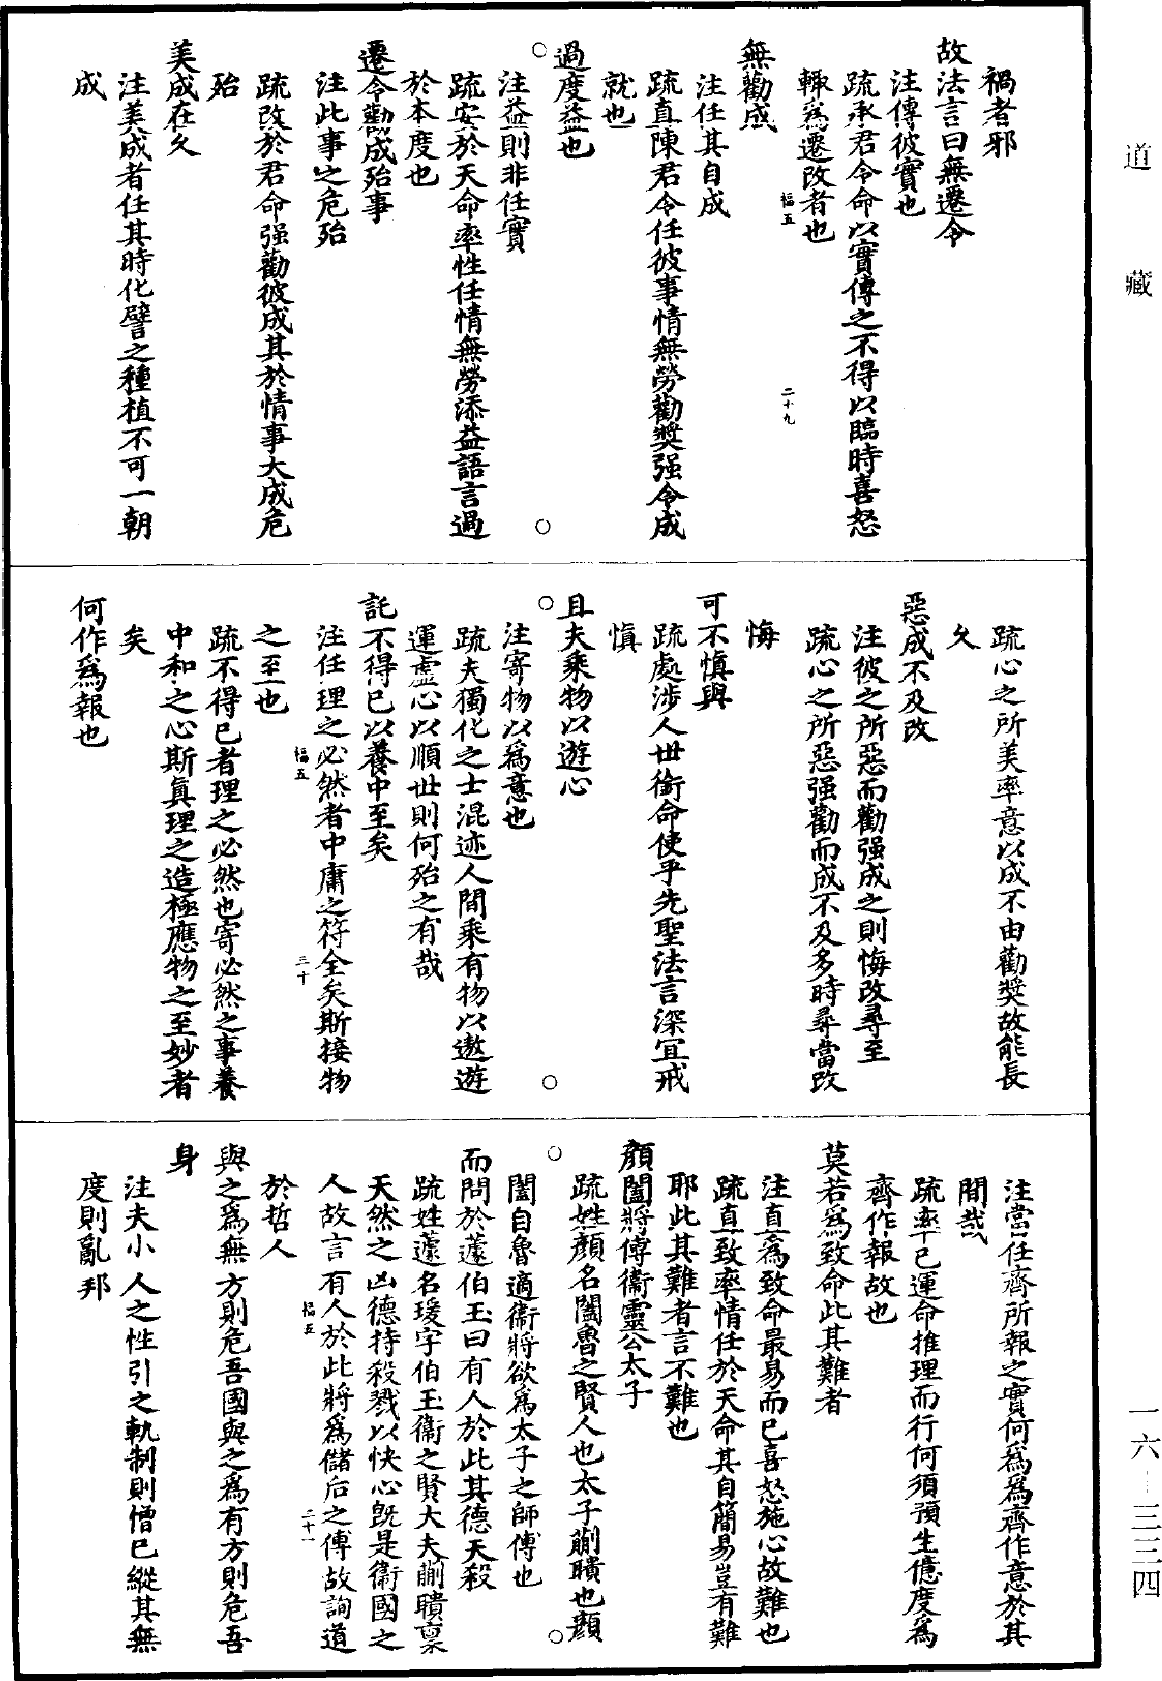 禍者邪
故法言曰無遷令
注傳彼實也
疏承君令命以實傳之不得以臨時喜怒
輙爲遷改者也
福五
二十九
無勸成
注任其自成
疏直陳君令任彼事情無勞勸奬强令成
就也
過度益也
注益則非任實
疏安於天命率性任情無勞添益語言過
於本度也
遷令勸成殆事
注此事之危殆
疏改於君命强勸彼成其於情事大成危
殆
美成在久
注美成者任其時化譬之種植不可一朝
成
疏心之所美率意以成不由勸奬故能長
久
惡成不及改
注彼之所惡而勸强成之則悔改尋至
疏心之所惡强勸而成不及多時尋當改
悔
可不慎與
疏處涉人世銜命使乎先聖法言深宜戒
慎
且夫乘物以遊心
注寄物以爲意也
疏夫獨化之士混迹人間乘有物以遨遊
運虛心以順世則何殆之有哉
託不得已以養中至矣
注任理之必然者中庸之符全矣斯接物
福五
三十
之至也
疏不得已者理之必然也寄必然之事養
中和之心斯真理之造極應物之至妙者
矣
何作爲報也
注當任齊所報之實何爲爲齊作意於其
間哉
疏率已運命推理而行何須預生億度爲
齊作報故也
莫若爲致命此其難者
注直爲致命最易而已喜怒施心故難也
疏直致率情任於天命其自簡易豈有難
耶此其難者言不難也
顏闔將傅衞靈公太子
疏姓顏名闔魯之賢人也太子蒯聵也顏
闔自魯適衞將欲爲太子之師傅也
而問於蘧伯玉曰有人於此其德天殺
疏姓蘧名瑗字伯玉衞之賢大夫蒯聵稟
天然之凶德持殺戮以快心旣是衞國之
人故言有人於此將爲儲后之傅故詢道
福五
二十一
於哲人
與之爲無方則危吾國與之爲有方則危吾
身
注夫小人之性引之軌制則憎已縱其無
度則亂邦
道藏
一六—三三四